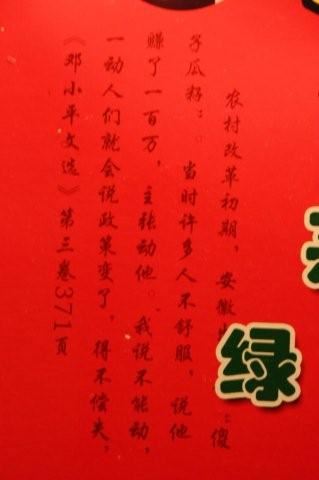 农村改革初期，安徽傻
子瓜籽”。当时许多人不舒服，说他
赚了一百万，主张动他。我说不能动，
一动人们就会说政策变了，得不偿失。
《邓小平文选》第三卷371页
绿